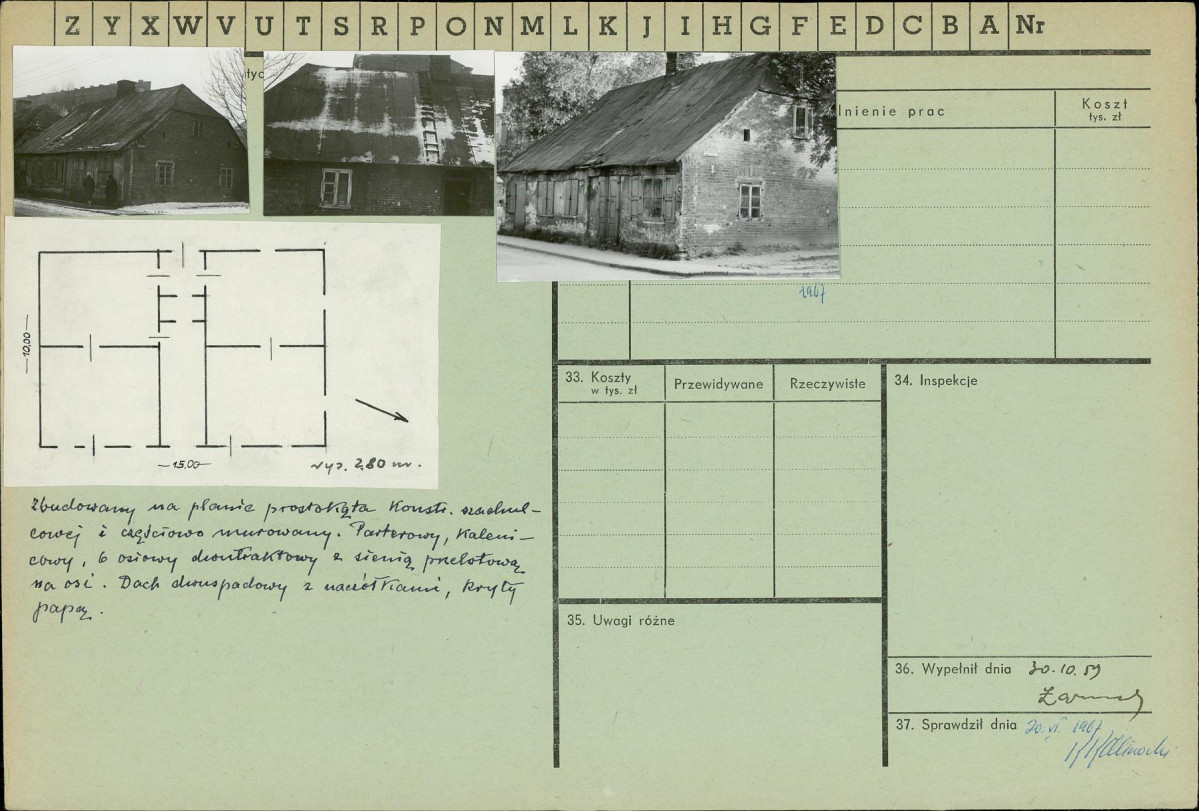 Z Y X W V U T S R P O N M L K J I H G F E D C B A Nr
łyc
lnienie prac
Koszt
tys. zł
1967
10,00
15.00
wys. 2,80 m.
Zbudowany na planie prostokąta Konstr. szachul-
cowej i częściowo murowany. Parterowy, Kaleni-
cowy, 6 osiowy dwutraktowy z sienią przelotową
na osi. Dach dwuspadowy z naczółkami, kryty
papą.
33. Koszty
w tys. zł
Przewidywane
Rzeczywiste
34. Inspekcje
35. Uwagi różne
36. Wypełnił dnia 30.10.59
37. Sprawdził dnia 20.VI.1967